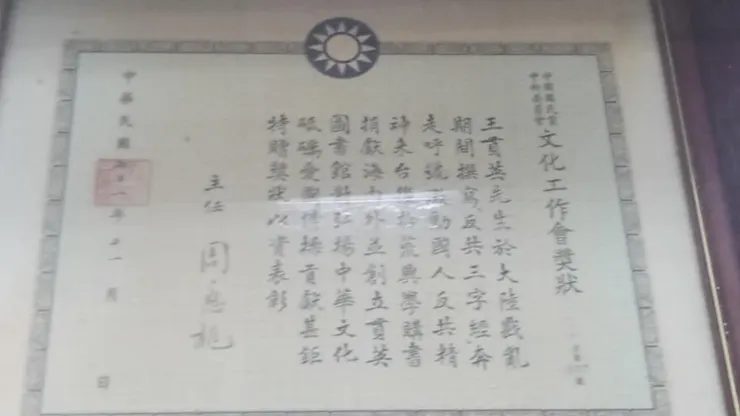 中國國民黨
中央委員會
文化工作會獎狀
王貫英先生於大陸戰亂
期間撰寫反共三字經奔
走呼號激動國人反共精
神來台後拾荒興學購書
捐獻海內外並創立貫英
圖書館對弘揚中華文化
砥礪愛國情操貢獻甚鉅
特贈獎狀以資表彰
主任 周應龍
中華民國七十一年十一月 日